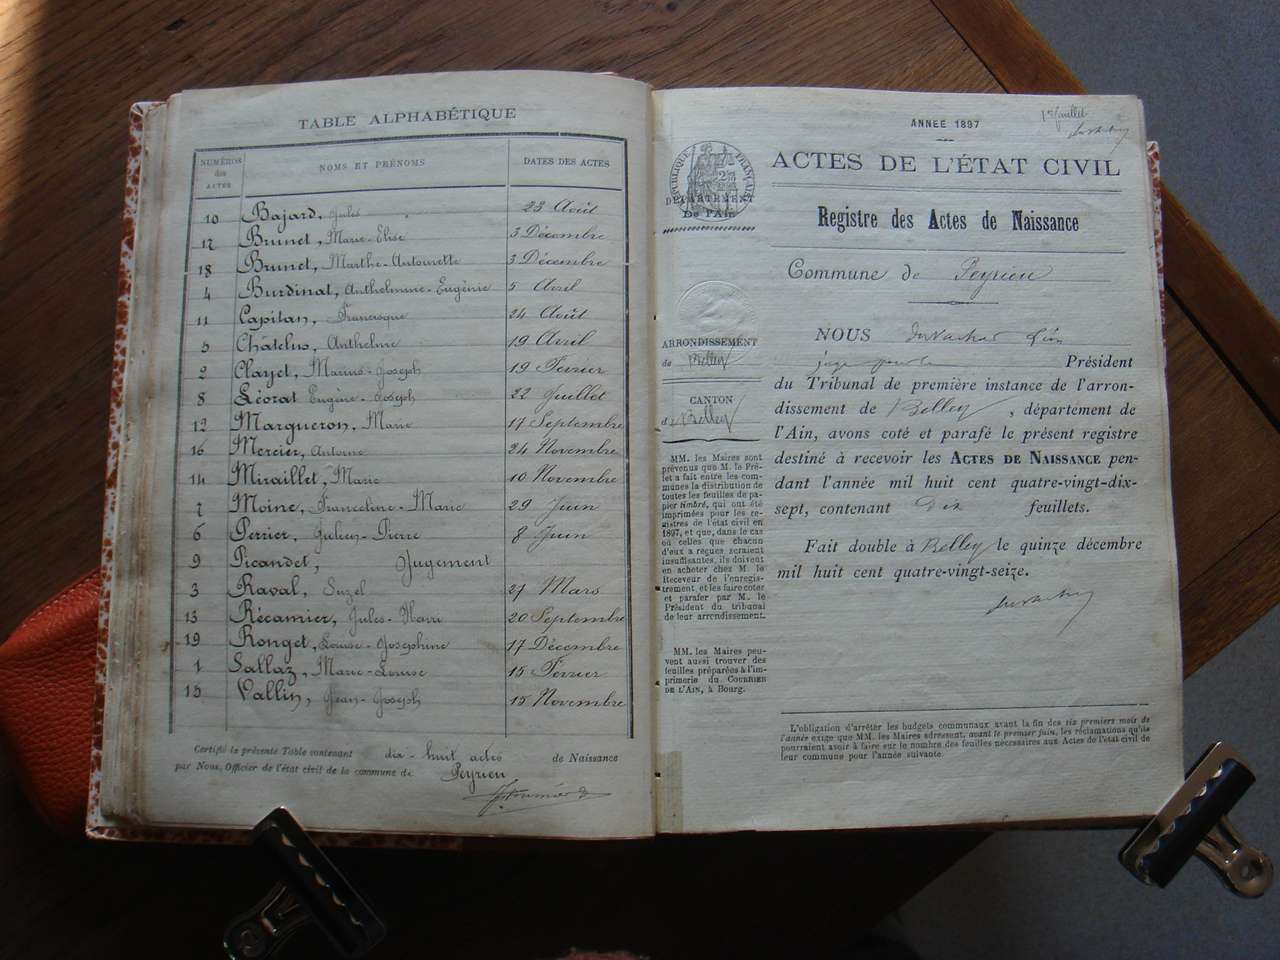 TABLE ALPHABÉTIQUE
NUMÉROS des ACTES NOMS ET PRÉNOMS DATES DES ACTES
10 Bajard, Jules 23 Août
17 Brunet, Marie-Elise 3 Décembre
18 Brunet, Marthe-Antoinette 3 Décembre
4 Burdinat, Anthelmine-Eugénie 5 Avril
11 Capitan, Francisque 24 Août
5 Châtelus, Anthelme 19 Avril
2 Clayet, Marius-Joseph 19 Février
8 Léorat Eugène-Joseph 22 Juillet
12 Margueron, Marie 17 Septembre
16 Mercier, Antoine 24 Novembre
14 Miraillet, Marie 10 Novembre
7 Moine, Franceline-Marie 29 Juin
6 Perrier, Julien-Pierre 8 Juin
9 Picandet, Jugement
3 Raval, Suzel 27 Mars
13 Récamier, Jules-Henri 20 Septembre
19 Ronget, Louise-Joséphine 17 Décembre
1 Sallaz, Marie-Louise 15 Février
15 Vallin, Jean-Joseph 15 Novembre
Certifié la présente Table contenant dix-huit actes de Naissance
par Nous, Officier de l'état civil de la commune de Peyrieu
ANNÉE 1897
ACTES DE L'ÉTAT CIVIL
RÉPUBLIQUE FRANÇAISE
DÉPARTEMENT
De l'Ain
Registre des Actes de Naissance
Commune de Peyrieu
ARRONDISSEMENT
de Belley
CANTON
de Belley
MM. les Maires sont
prévenus que M. le Pré-
fet a fait entre les com-
munes la distribution de
toutes les feuilles de pa-
pier timbré, qui ont été
imprimées pour les re-
gistres de l'état civil en
1897, et que, dans le cas
où celles que chacun
d'eux a reçues seraient
insuffisantes, ils doivent
en acheter chez M. le
Receveur de l'enregis-
trement, et les faire coter
et parafer par M. le
Président du tribunal
de leur arrondissement.
MM. les Maires peu-
vent aussi trouver des
feuilles préparées à l'im-
primerie du COURRIER
DE L'AIN, à Bourg.
NOUS Léon
Président
du Tribunal de première instance de l'arron-
dissement de Belley, département de
l'Ain, avons coté et parafé le présent registre
destiné à recevoir les ACTES DE NAISSANCE pen-
dant l'année mil huit cent quatre-vingt-dix-
sept, contenant Dix feuillets.
Fait double à Belley le quinze décembre
mil huit cent quatre-vingt-seize.
L'obligation d'arrêter les budgets communaux avant la fin des six premiers mois de
l'année exige que MM. les Maires adressent, avant le premier juin, les réclamations qu'ils
pourraient avoir à faire sur le nombre des feuilles nécessaires aux Actes de l'état civil de
leur commune pour l'année suivante.